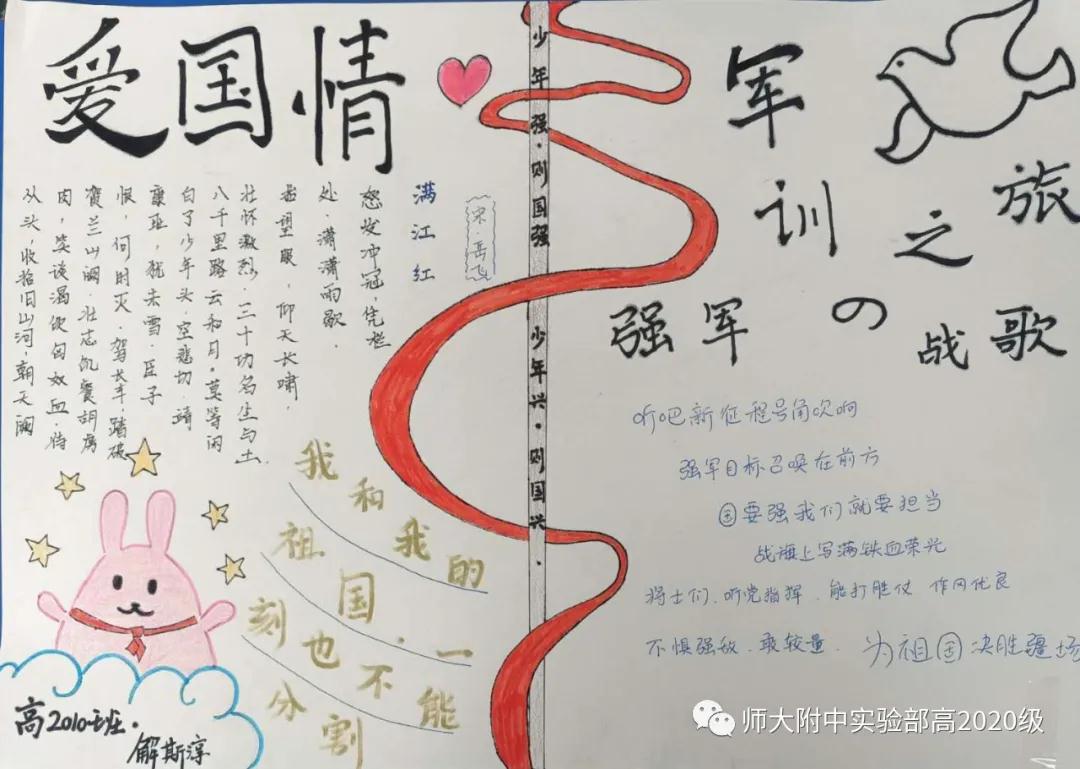 爱国情
宋·岳飞
满江红
怒发冲冠,凭栏
处.潇潇雨歇.
抬望眼,仰天长啸,
壮怀激烈.三十功名尘与土
八千里路云和月。莫等闲
白了少年头,空悲切.靖
康耻,犹未雪.臣子
恨,何时灭.驾长车,踏破
贺兰山阙.壮志饥餐胡虏
肉,笑谈渴饮匈奴血.待
从头,收拾旧山河,朝天阙
我和我的
祖国.一
刻也不能
分割
高2010班.
解斯淳
少年强.则国强 少年兴.则国兴.
军训之旅
强军の战歌
听吧新征程号角吹响
强军目标召唤在前方
国要强我们就要担当
战旗上写满铁血荣光
将士们.听党指挥.能打胜仗 作风优良
不惧强敌.敢较量.为祖国决胜疆场
师大附中实验部高2020级